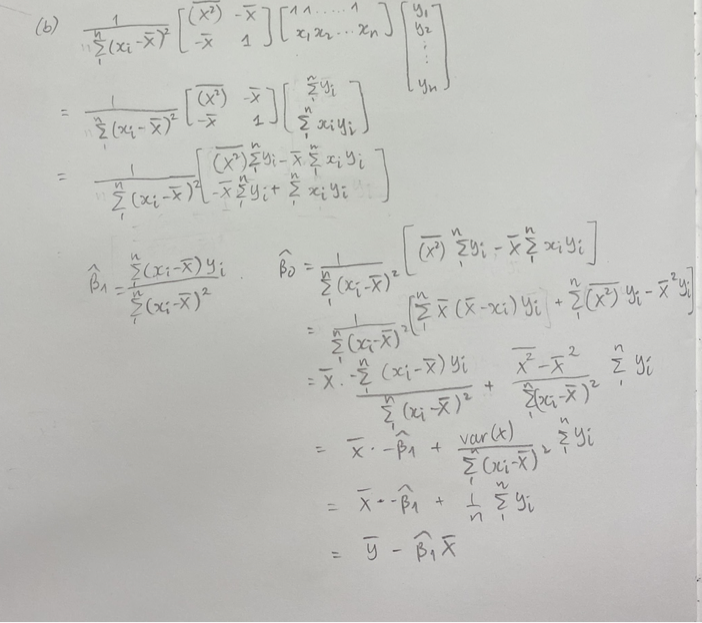 (b) \frac{1}{\sum_{1}^{n}(x_i-\bar{x})^2} \begin{bmatrix} \overline{(x^2)} & -\bar{x} \\ -\bar{x} & 1 \end{bmatrix} \begin{bmatrix} 1 & 1 & \cdots & 1 \\ x_1 & x_2 & \cdots & x_n \end{bmatrix} \begin{bmatrix} y_1 \\ y_2 \\ \vdots \\ y_n \end{bmatrix}
= \frac{1}{\sum_{1}^{n}(x_i-\bar{x})^2} \begin{bmatrix} \overline{(x^2)} & -\bar{x} \\ -\bar{x} & 1 \end{bmatrix} \begin{bmatrix} \sum_{1}^{n} y_i \\ \sum_{1}^{n} x_i y_i \end{bmatrix}
= \frac{1}{\sum_{1}^{n}(x_i-\bar{x})^2} \begin{bmatrix} \overline{(x^2)} \sum_{1}^{n} y_i - \bar{x} \sum_{1}^{n} x_i y_i \\ -\bar{x} \sum_{1}^{n} y_i + \sum_{1}^{n} x_i y_i \end{bmatrix}
\hat{\beta}_1 = \frac{\sum_{1}^{n}(x_i-\bar{x}) y_i}{\sum_{1}^{n}(x_i-\bar{x})^2} .
\hat{\beta}_0 = \frac{1}{\sum_{1}^{n}(x_i-\bar{x})^2} \left[ \overline{(x^2)} \sum_{1}^{n} y_i - \bar{x} \sum_{1}^{n} x_i y_i \right]
= \frac{1}{\sum_{1}^{n}(x_i-\bar{x})^2} \left[ \sum_{1}^{n} \bar{x}(\bar{x}-x_i) y_i + \sum_{1}^{n} \overline{(x^2)} y_i - \bar{x}^2 y_i \right]
= \bar{x} \cdot \frac{-\sum_{1}^{n}(x_i-\bar{x}) y_i}{\sum_{1}^{n}(x_i-\bar{x})^2} + \frac{\overline{x^2}-\bar{x}^2}{\sum_{1}^{n}(x_i-\bar{x})^2} \sum_{1}^{n} y_i
= \bar{x} \cdot -\hat{\beta}_1 + \frac{var(x)}{\sum_{1}^{n}(x_i-\bar{x})^2} \sum_{1}^{n} y_i
= \bar{x} \cdot -\hat{\beta}_1 + \frac{1}{n} \sum_{1}^{n} y_i
= \bar{y} - \hat{\beta}_1 \bar{x}